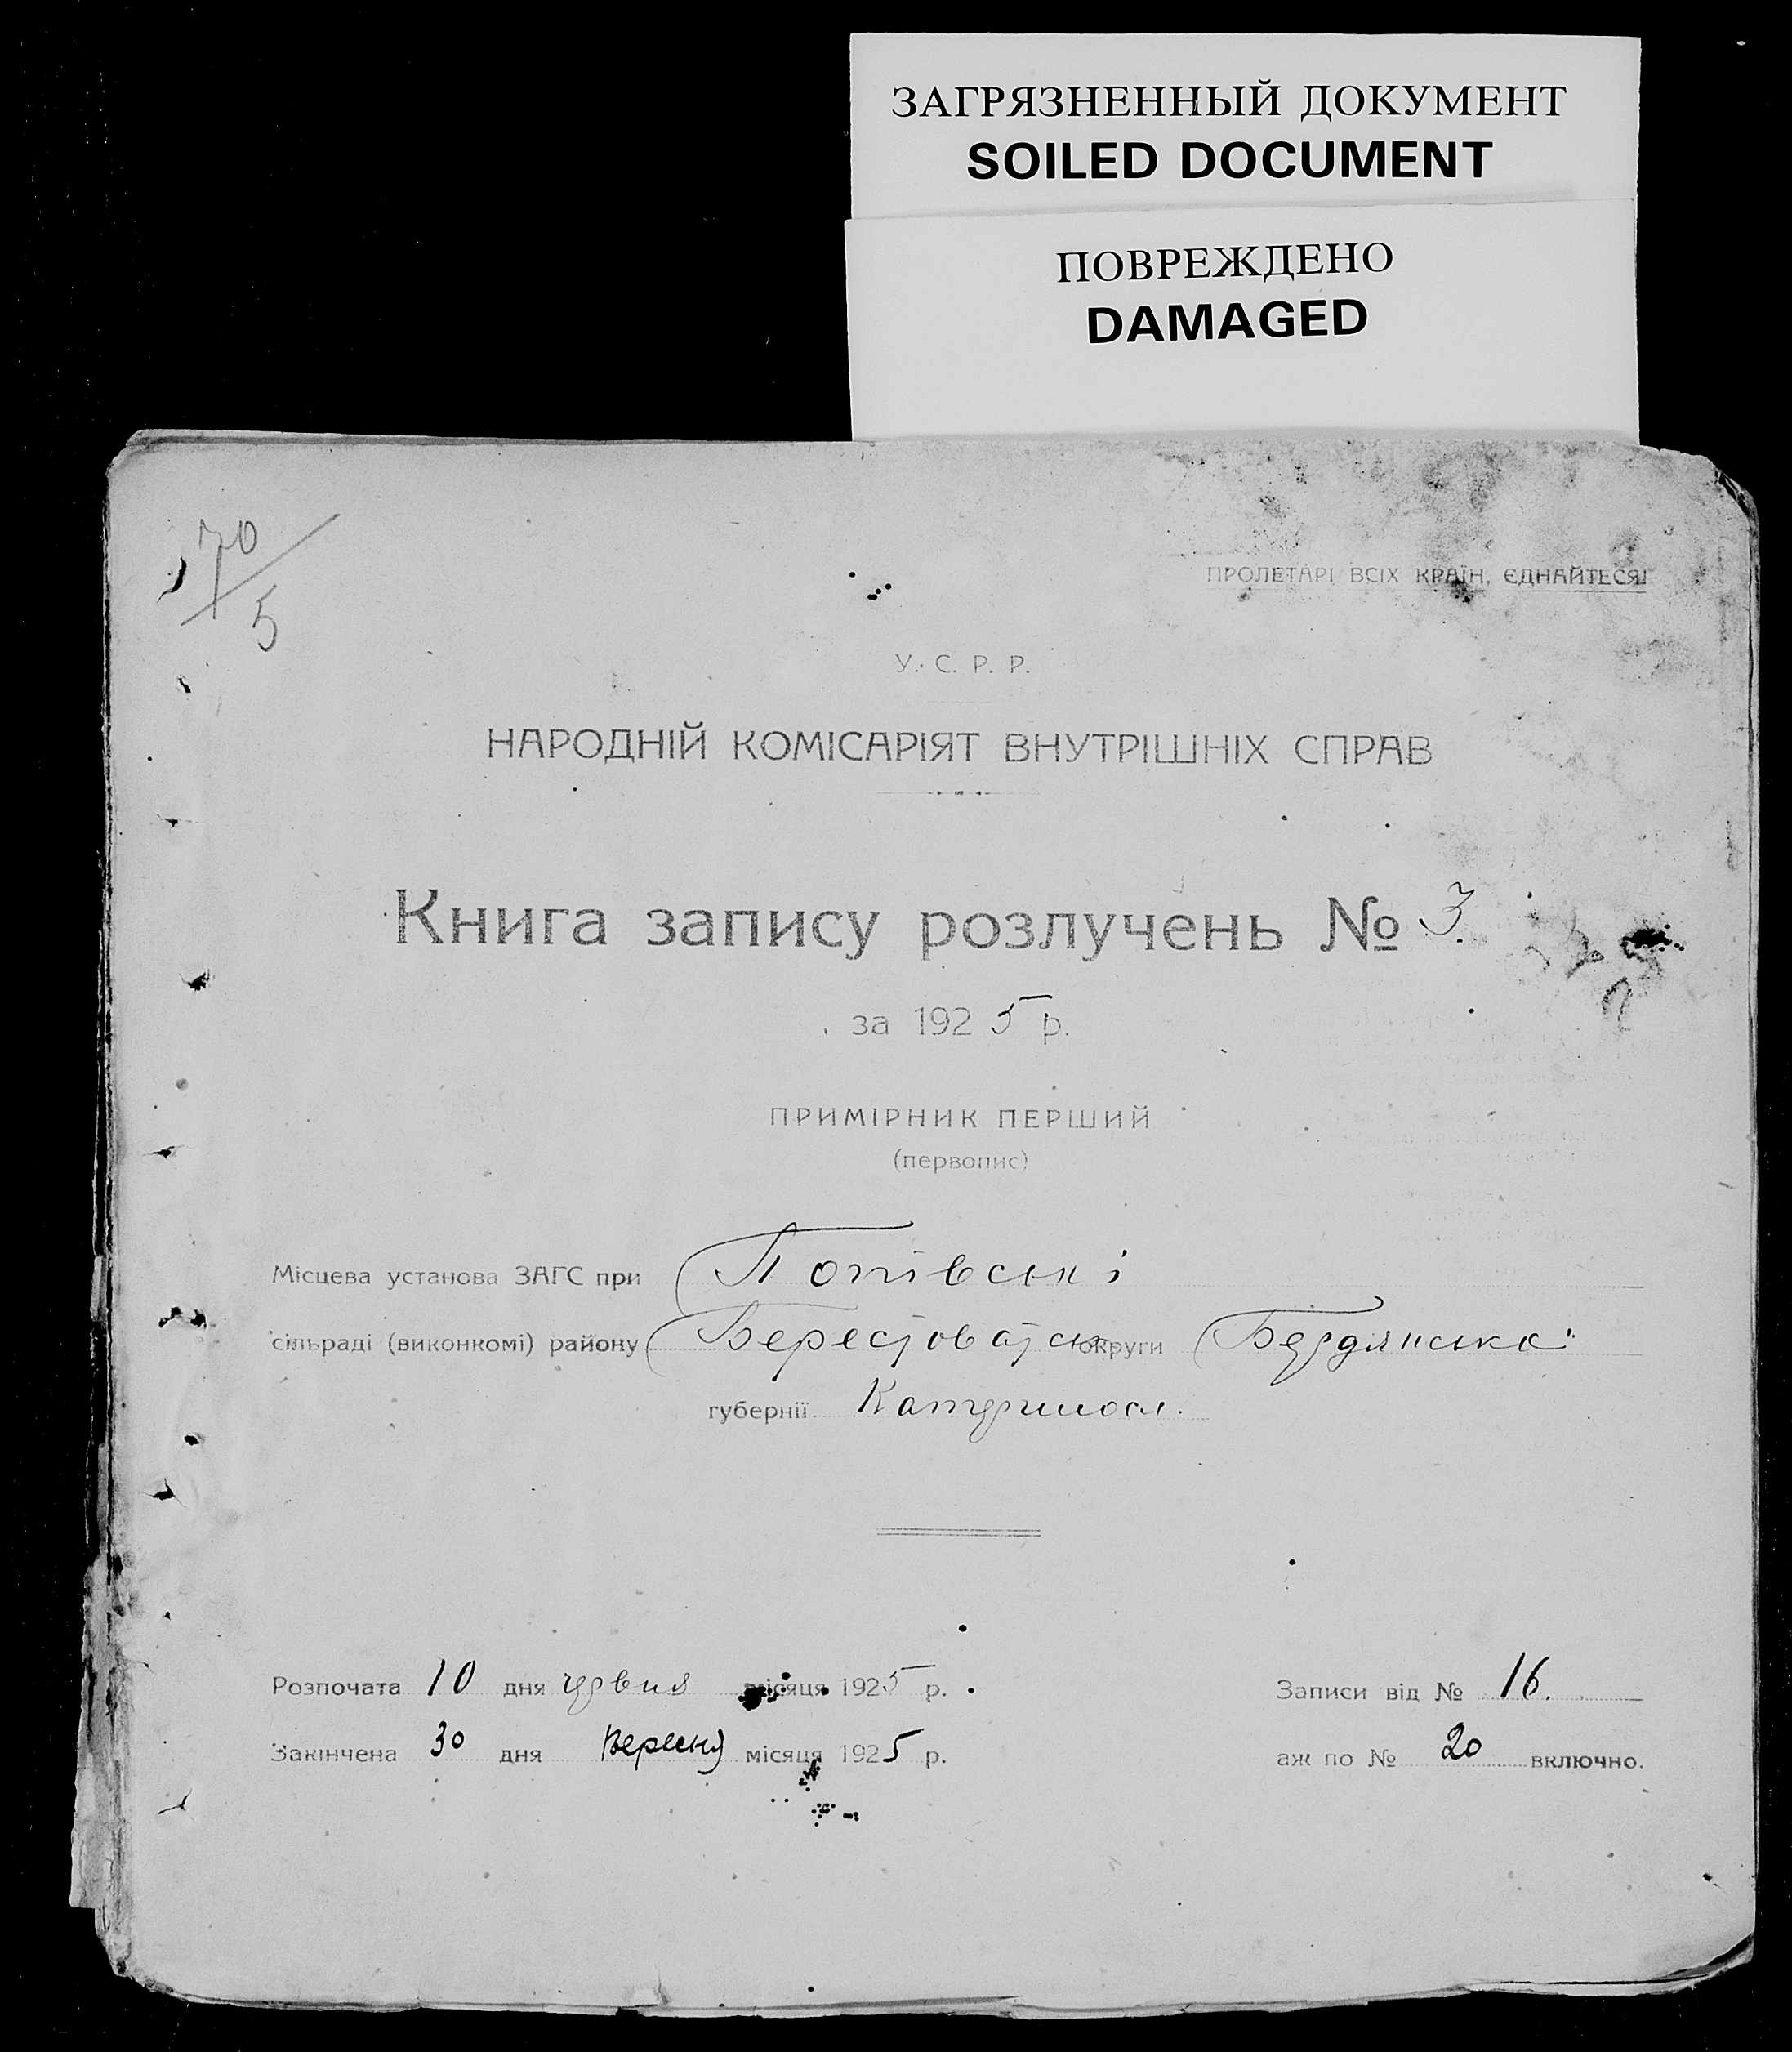 ЗАГРЯЗНЕННЫЙ ДОКУМЕНТ
SOILED DOCUMENT
ПОВРЕЖДЕНО
DAMAGED
70/5
ПРОЛЕТАРІ ВСІХ КРАЇН, ЄДНАЙТЕСЯ!
У. С. Р. Р.
НАРОДНІЙ КОМІСАРІЯТ ВНУТРІШНІХ СПРАВ
Книга запису розлучень № 3.
за 1925 р.
ПРИМІРНИК ПЕРШИЙ
(первопис)
Місцева установа ЗАГС при Попівські
сільраді (виконкомі) району Берестоватськ округи Бердянської
губернії Катериносл.
Розпочата 10 дня червня місяця 1925 р.
Закінчена 30 дня Вересня місяця 1925 р.
Записи від № 16.
аж по № 20 включно.